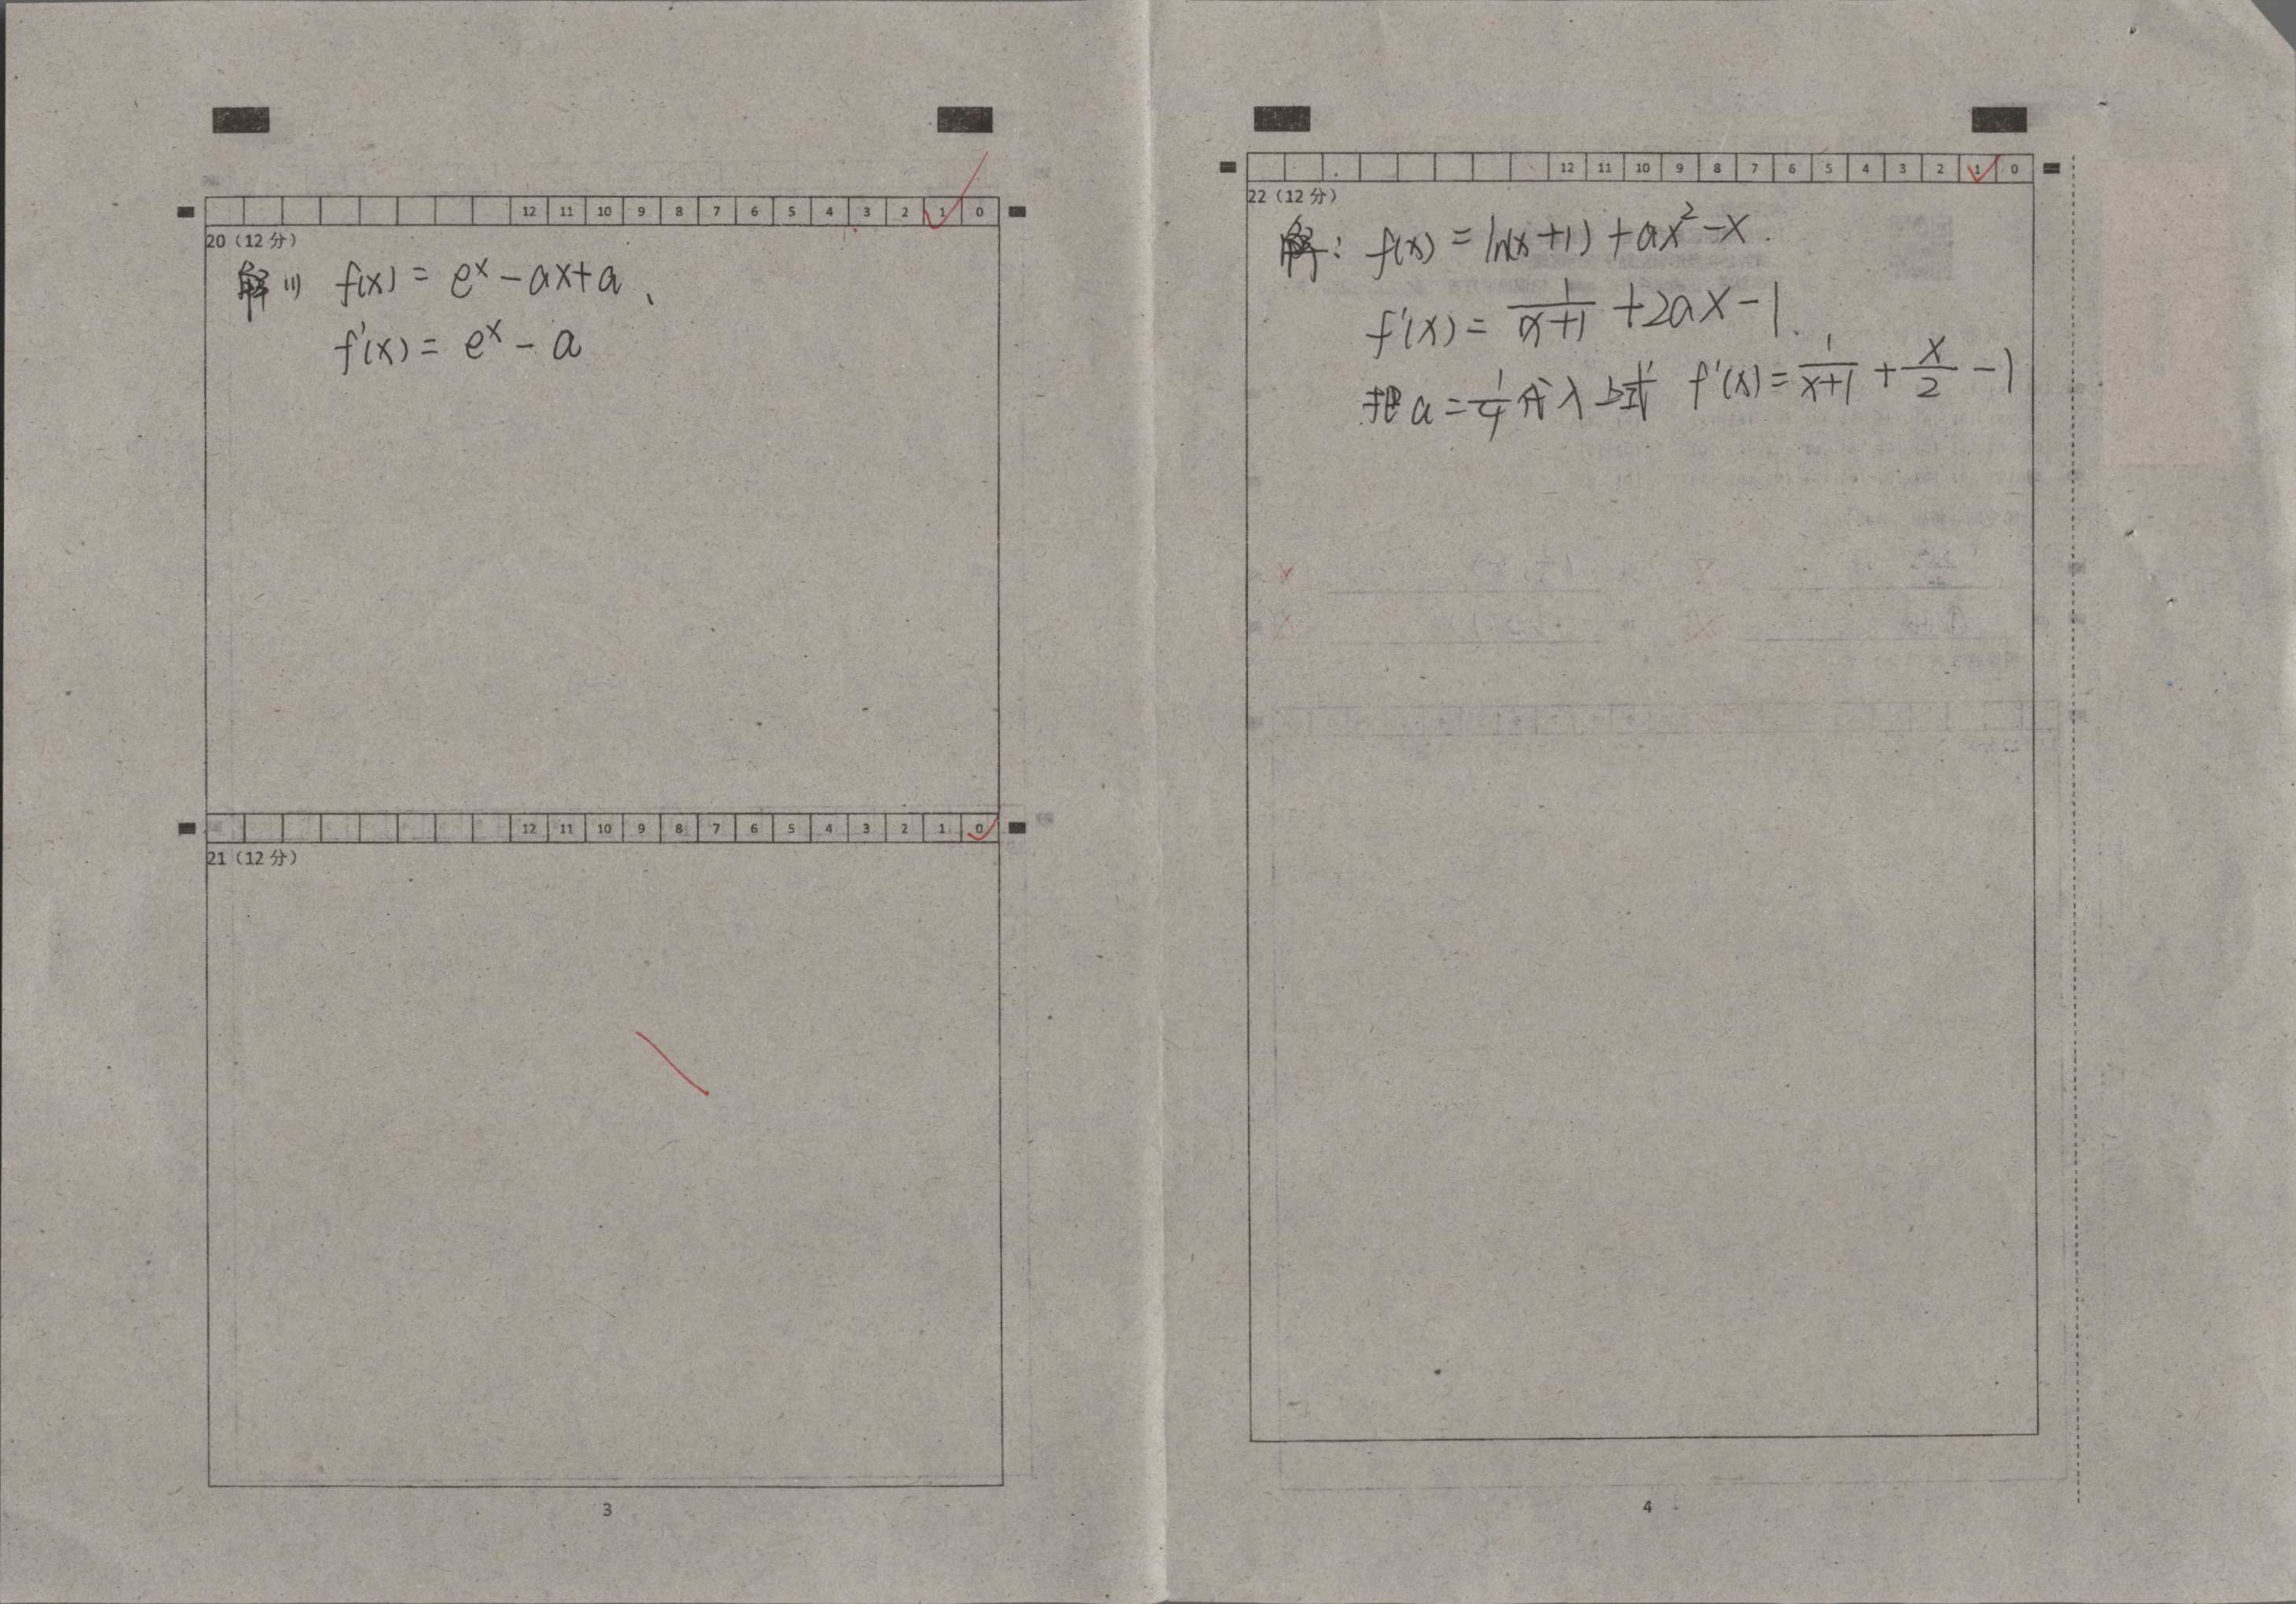 12 11 10 9 8 7 6 5 4 3 2 1 0
20（12 分）
解(1) f(x) = eˣ - ax + a、
f'(x) = eˣ - a
12 11 10 9 8 7 6 5 4 3 2 1 0
21（12 分）
3
12 11 10 9 8 7 6 5 4 3 2 1 0
22（12 分）
解: f(x) = ln(x+1) + ax² - x.
f'(x) = 1/(x+1) + 2ax - 1.
把 a = 1/4 代入上式 f'(x) = 1/(x+1) + x/2 - 1
4